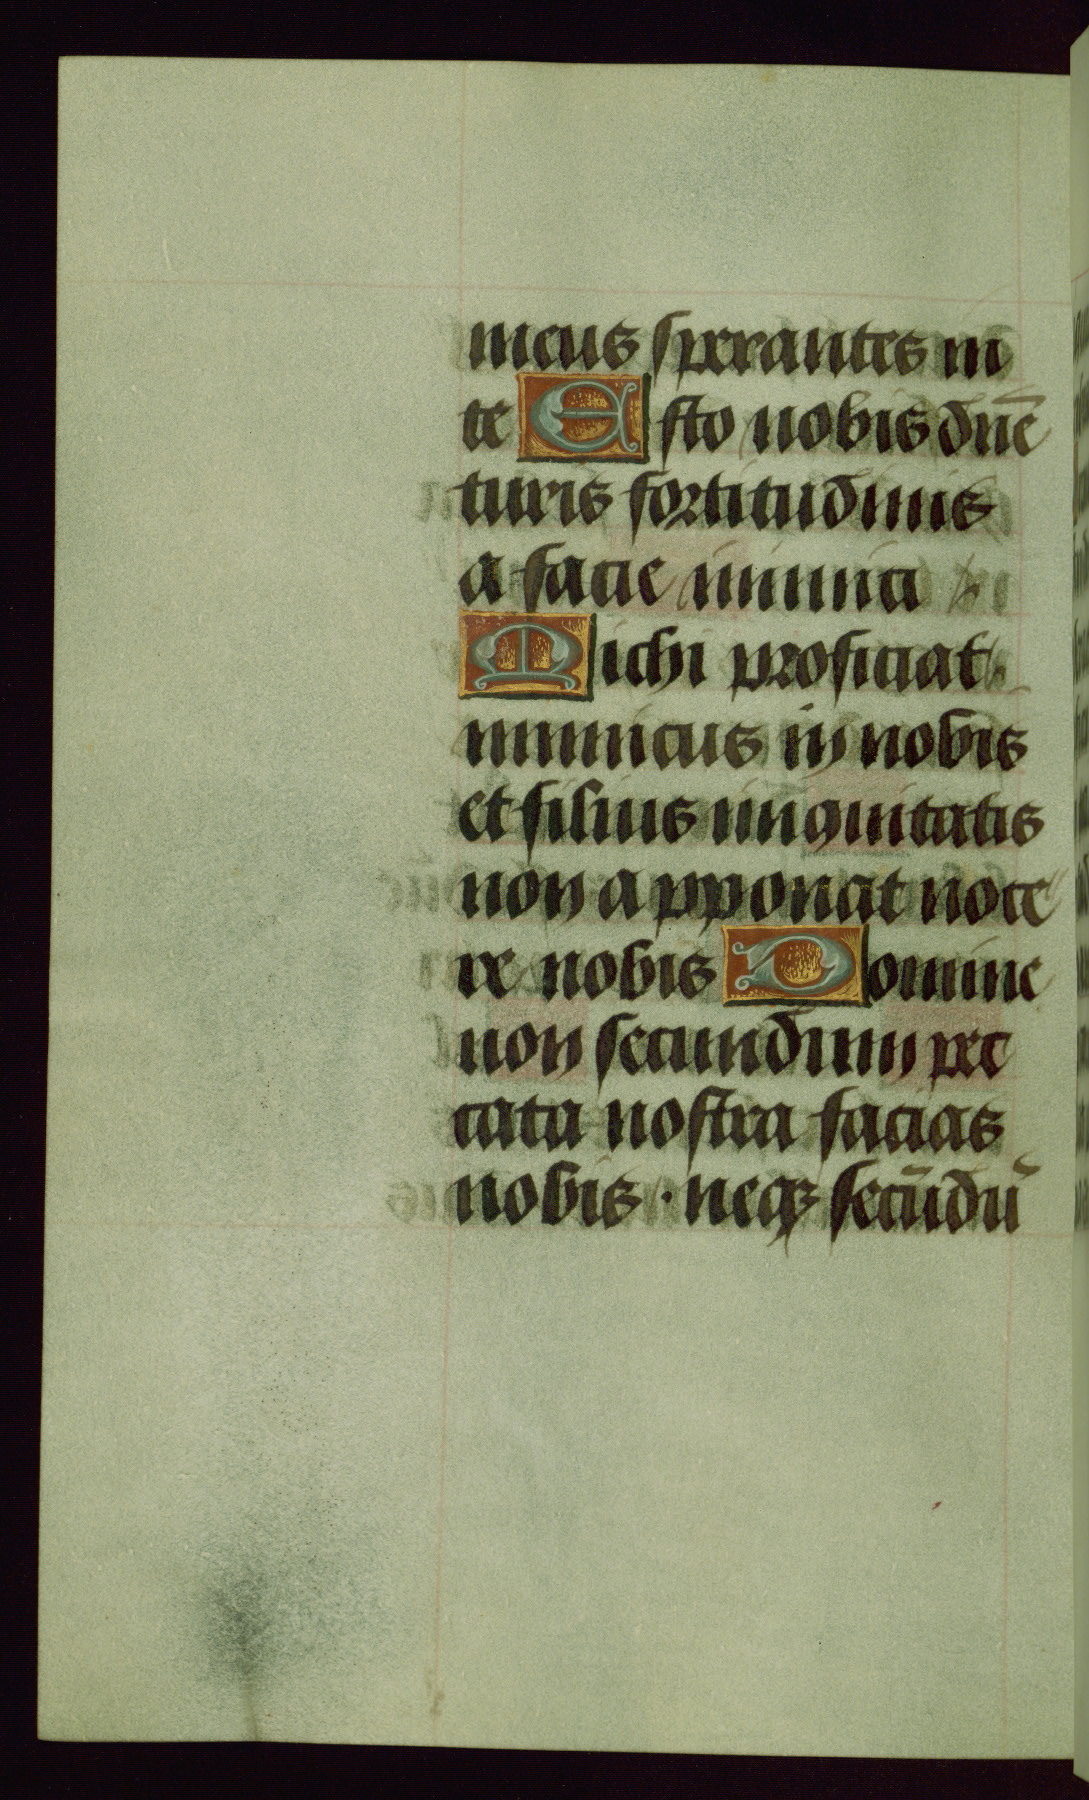 meus sperantes in
te Esto nobis dn̄e
turis fortitudinis
a facie inimici
Nichi proficiat
inimicus in nobis
et filius iniquitatis
non apponat noce
re nobis Domine
non secundum pec
cata nostra facias
nobis · neqꝫ secūdū